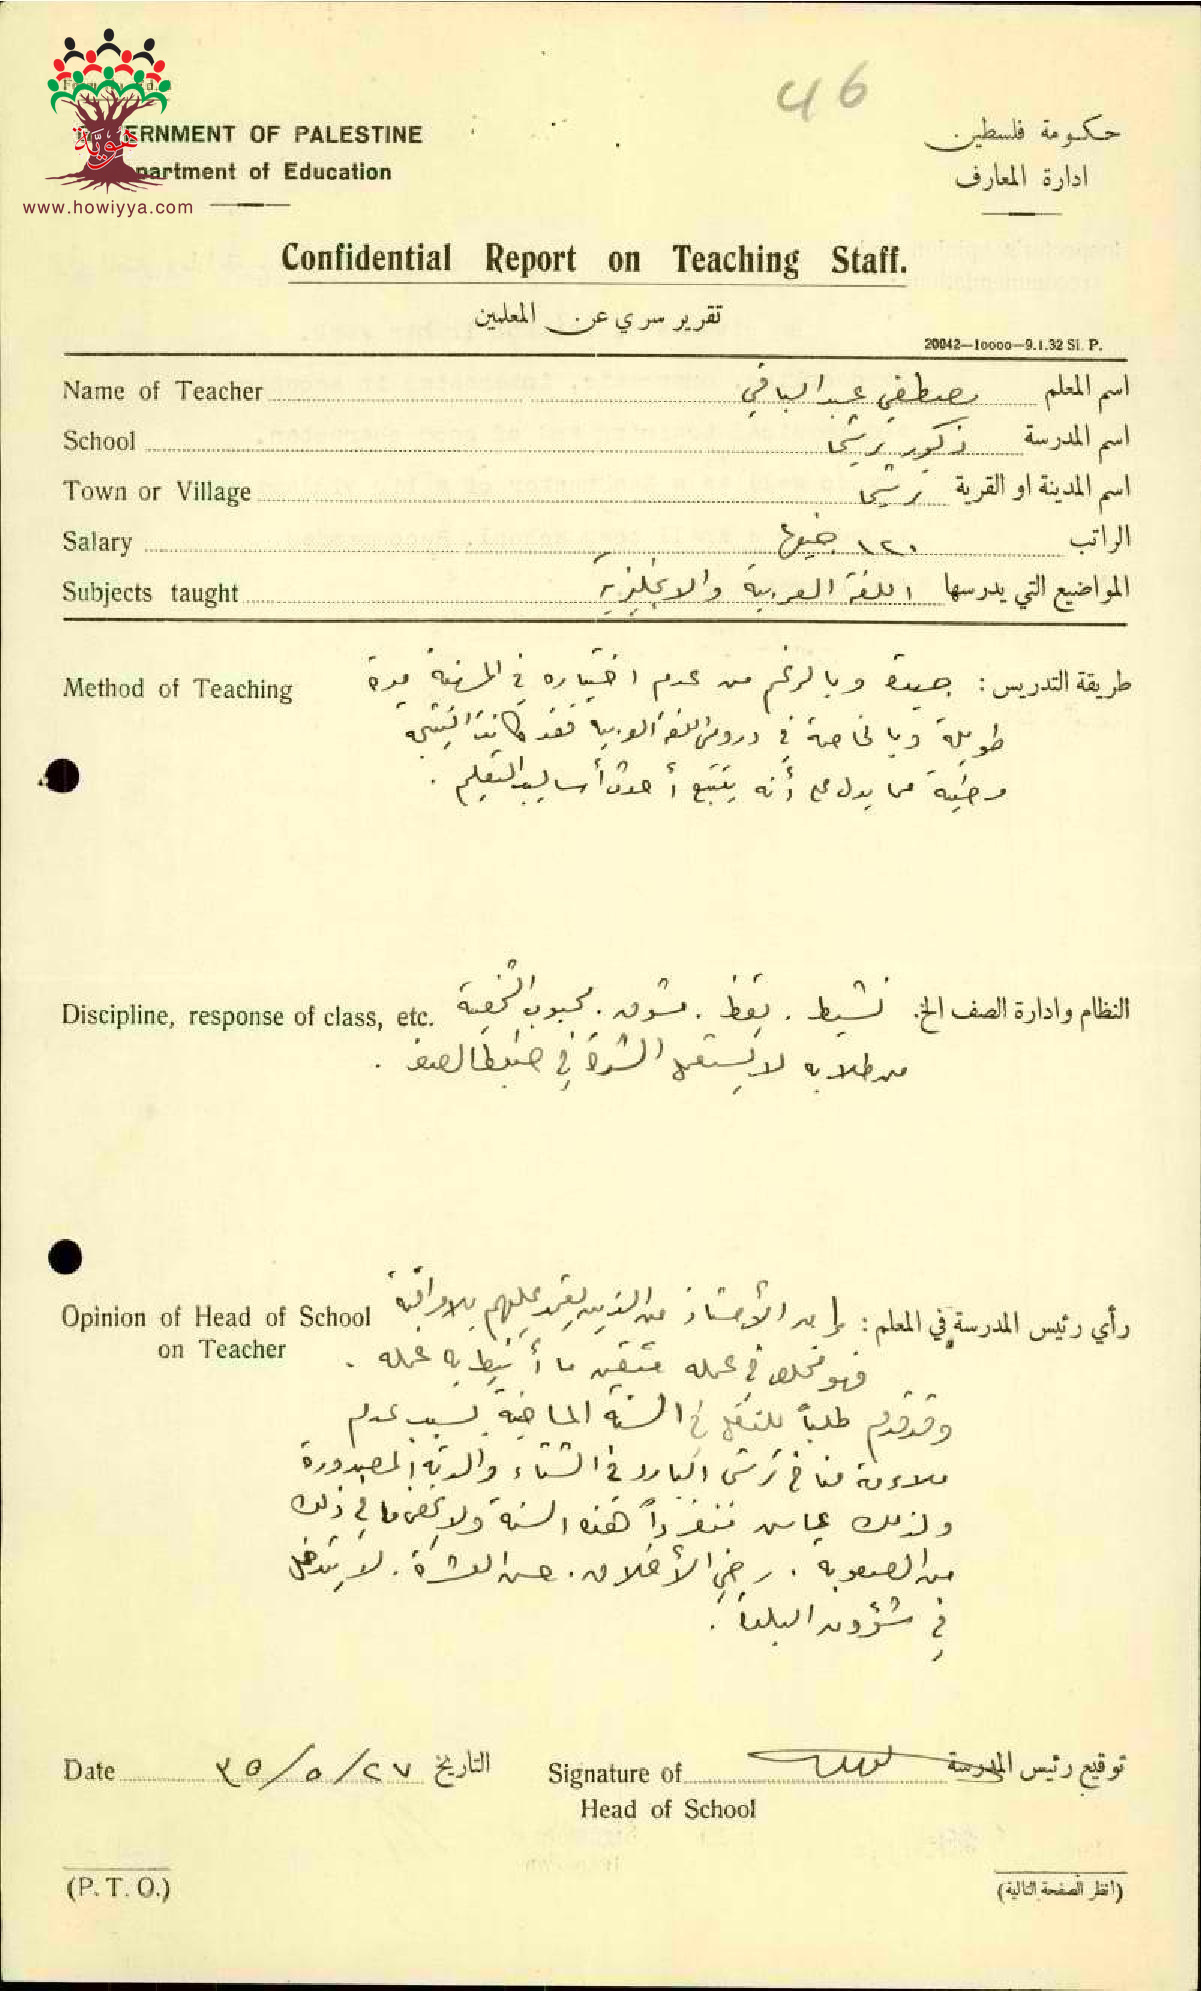 46
GOVERNMENT OF PALESTINE
Department of Education
www.howiyya.com
هوية
حكومة فلسطين
ادارة المعارف
Confidential Report on Teaching Staff.
تقرير سري عن المعلمين
20042—10000—9.1.32 Sl. P.
Name of Teacher مصطفى عبد الباقي اسم المعلم
School ذكور ترشيحا اسم المدرسة
Town or Village ترشيحا اسم المدينة او القرية
Salary ١٢٠ جنيها الراتب
Subjects taught اللغة العربية والانجليزية المواضيع التي يدرسها
Method of Teaching طريقة التدريس : جيدة وبالرغم من عدم اختباره في المهنة مدة
طويلة وبالخاصة في دروس اللغة العربية فقد كانت النتيجة
مرضية مما يدل على أنه يتتبع أحدث أساليب التعليم .
Discipline, response of class, etc. النظام وادارة الصف الخ. نشيط . يقظ . مشوق . محبوب الشخصية
من طلابه لا يستعمل الشدة في ضبط الصف .
Opinion of Head of School رأي رئيس المدرسة في المعلم : الأستاذ من الذين يعتمد عليهم بلا مراقبة
on Teacher
فهو مخلص في عمله متقن ما أنيط به عمله .
وقد قدم طلباً للنقل في السنة الماضية بسبب عدم
ملاءمة مناخ البارد في الشتاء
ولذلك منفرداً هذه السنة ولا يخفى ما في ذلك
من الصعوبة . رضي الأخلاق . حسن العشرة . لا يتدخل
في شؤون البلد .
Date ٢٧/٥/٣٥ التاريخ Signature of توقيع رئيس المدرسة
Head of School
(P. T. O.)
(انظر الصفحة التالية)